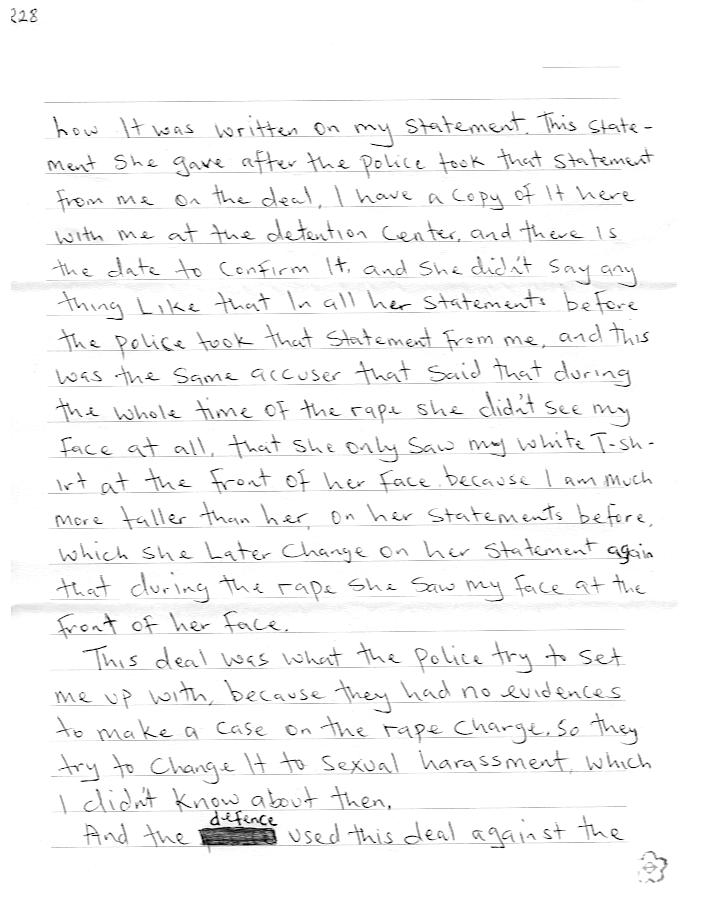 228
how It was written on my statement. This state-
ment she gave after the police took that statement
from me on the deal, I have a copy of It here
with me at the detention center, and there Is
the date to confirm It, and she didn't say any
thing Like that In all her statements before
the police took that statement from me, and this
was the same accuser that said that during
the whole time of the rape she didn't see my
face at all, that she only saw my white T-sh-
irt at the front of her face because I am much
more taller than her, on her statements before,
which she Later change on her statement again
that during the rape she saw my face at the
front of her face.
This deal was what the police try to set
me up with, because they had no evidences
to make a case on the rape charge, so they
try to change It to sexual harassment, which
I didn't know about then,
And the defence used this deal against the